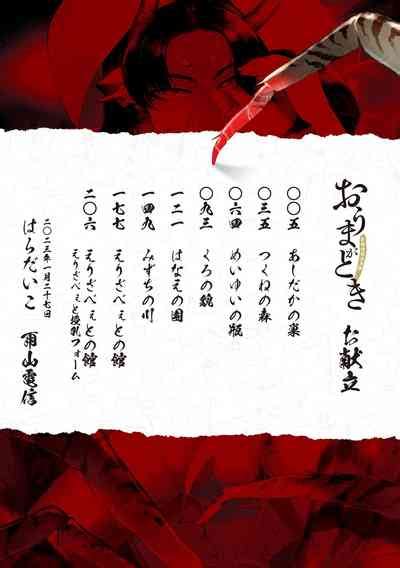 おうまがとき お献立
〇〇五 あしだかの巣
〇三五 つくねの森
〇六四 めいゆいの版
〇九三 くろの鏡
一二一 はなえの園
一四九 みずちの川
一七七 えりざべぇとの館
二〇六 えりざべぇとの館
えりざべぇと授乳フォーム
二〇二三年一月二十七日
はらだいこ 雨山電信